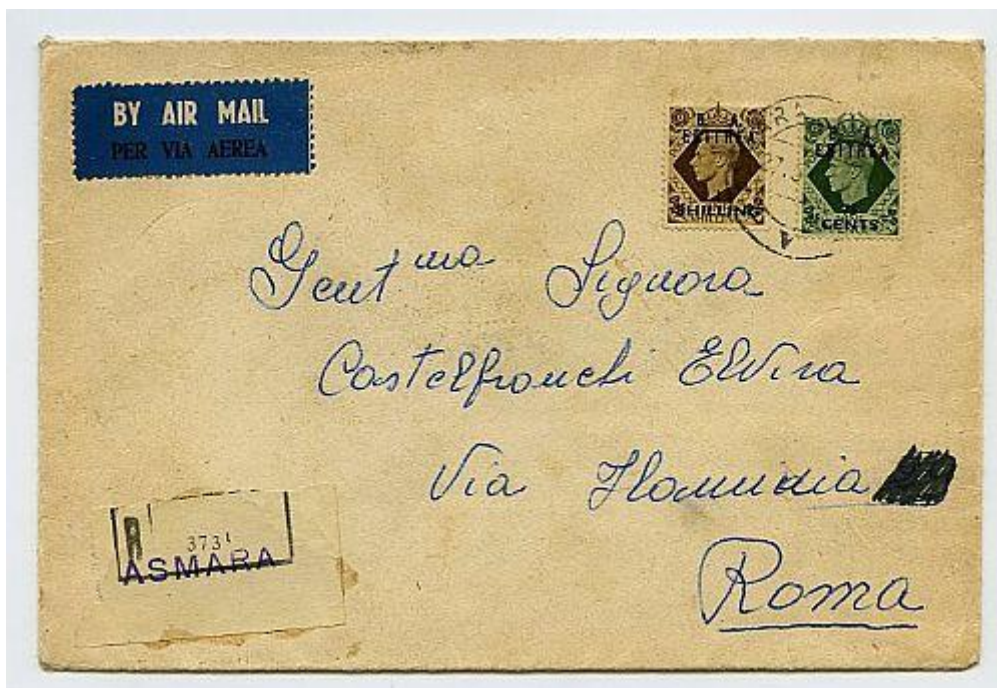 BY AIR MAIL
PER VIA AEREA
B. A.
ERITREA
SHILLING
B. A.
ERITREA
CENTS
Gent ma Signora
Castelfranchi Elvira
Via Flaminia
Roma
R
373
ASMARA